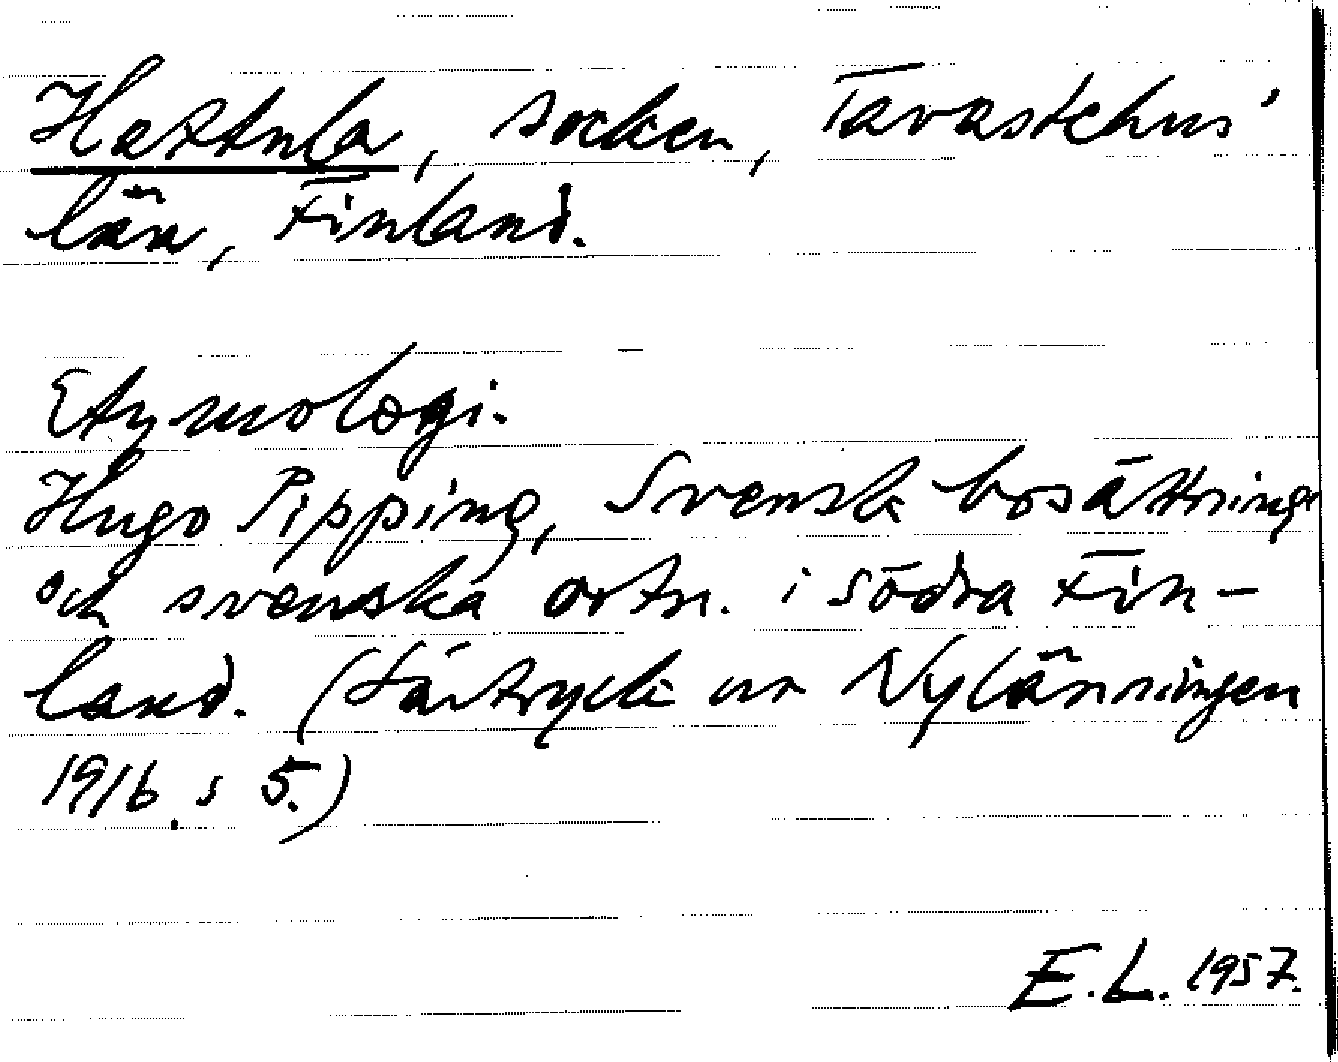 Hattula, socken, Tavastehus'
län, Finland.
Etymologi.
Hugo Pipping, Svensk bosättning
och svenska ortn. i södra Fin-
land. (Särtryck ur Nylänningen
1916. s 5.)
E.L. 1957.